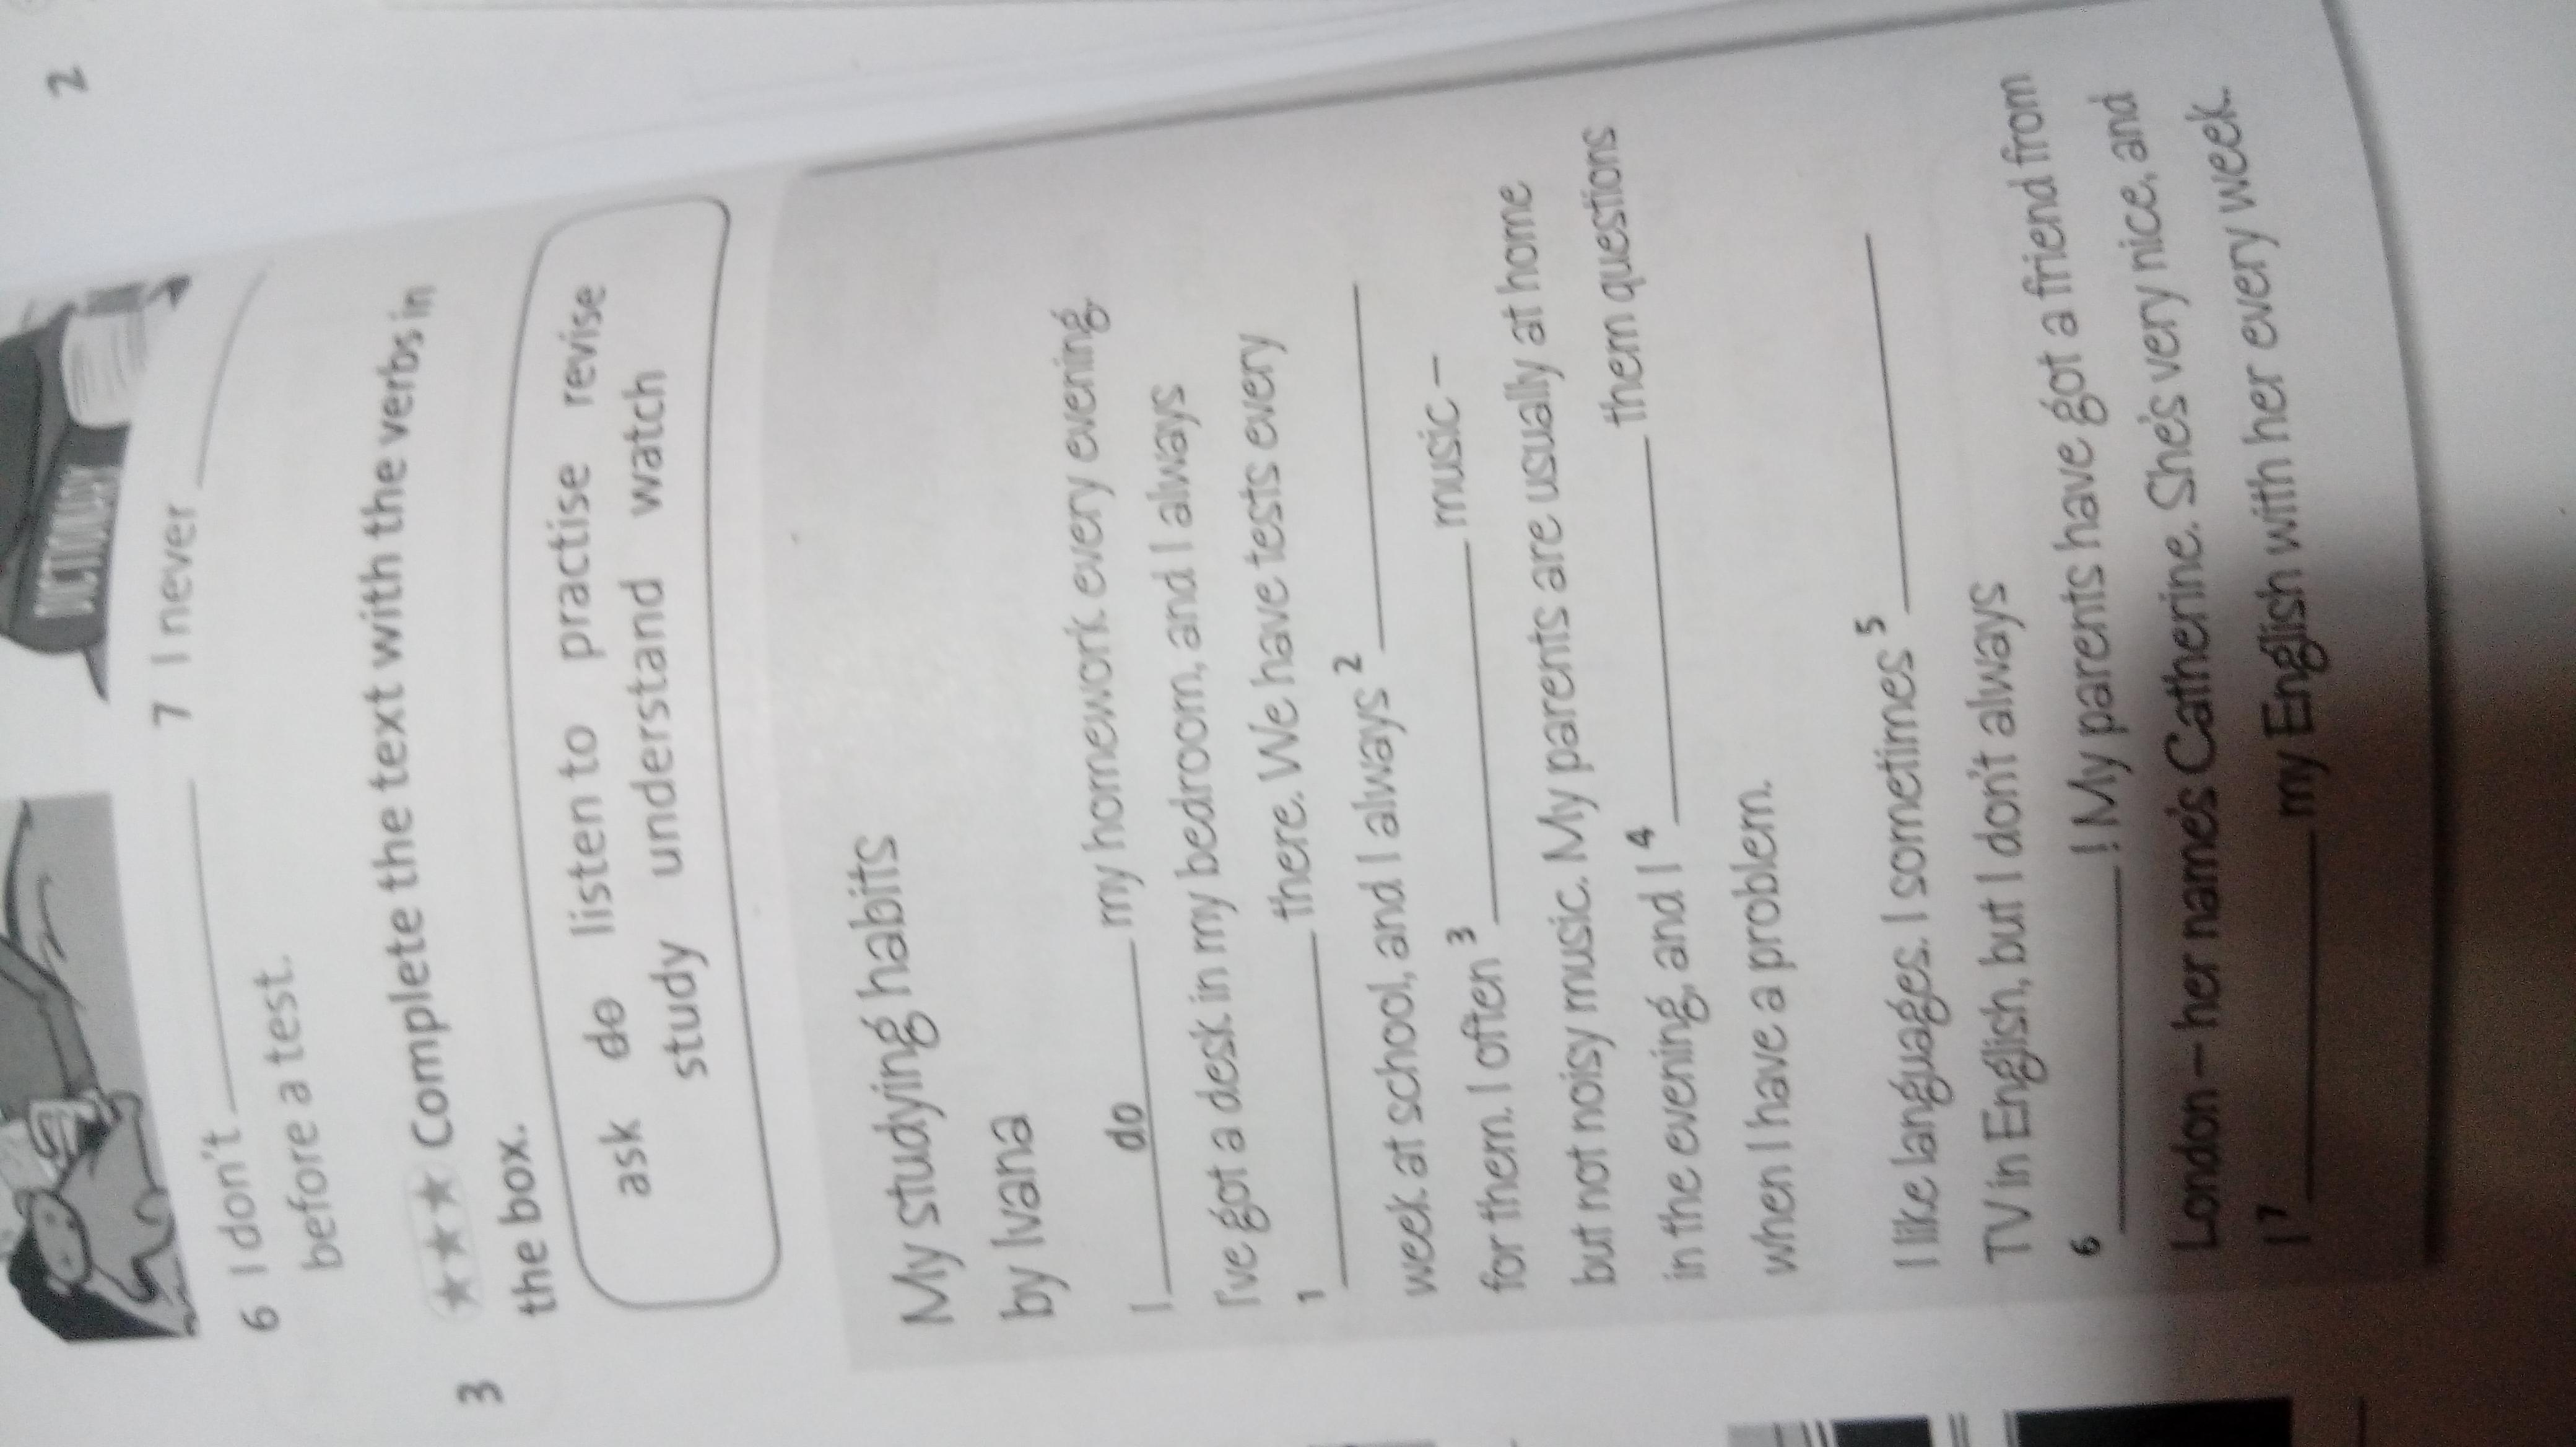 2
DICTIONARY
6 I don't
before a test.
7 I never
3 ★★★ Complete the text with the verbs in
the box.
ask do listen to practise revise
study understand watch
My studying habits
by Ivana
I do my homework every evening.
I've got a desk in my bedroom, and I always
1 there. We have tests every
week at school, and I always 2
for them. I often 3 music –
but not noisy music. My parents are usually at home
in the evening, and I 4 them questions
when I have a problem.
I like languages. I sometimes 5
TV in English, but I don't always
6 ! My parents have got a friend from
London – her name's Catherine. She's very nice, and
I 7 my English with her every week.